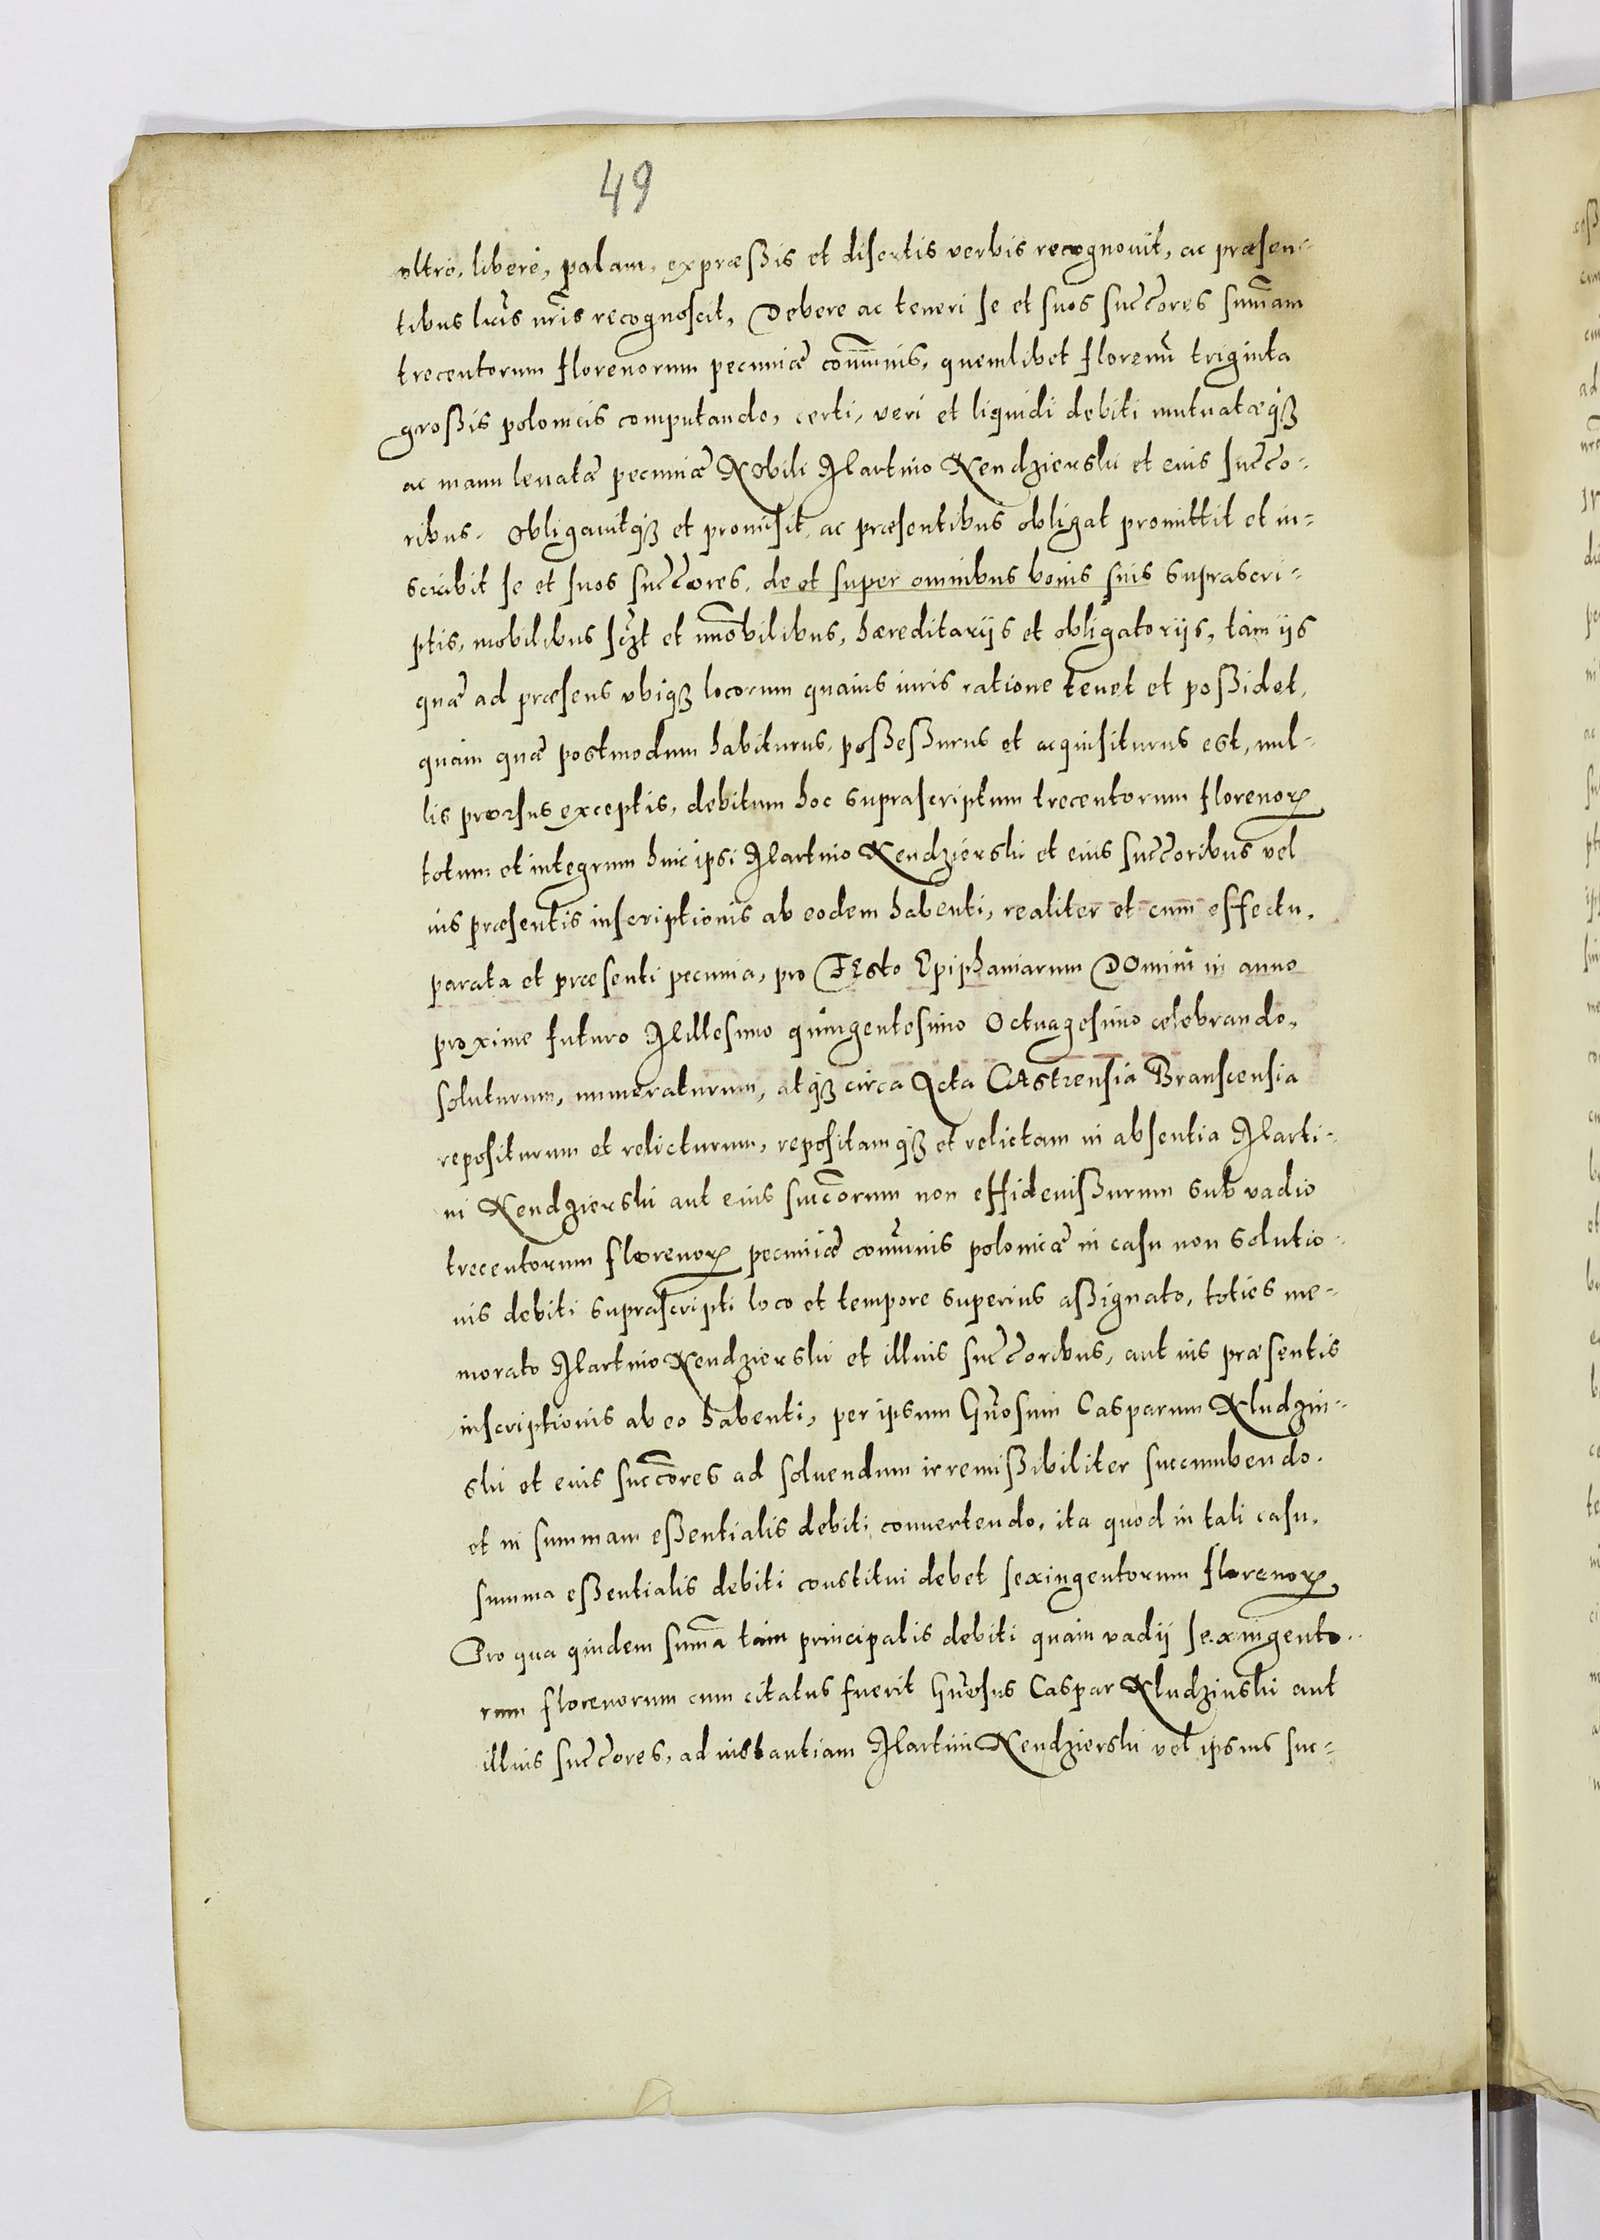 49
ultro, liberè, palam, expræßis et disertis verbis recognouit, ac præsen-
tibus lr̃is nr̃is recognoscit, Debere ac teneri se et suos succ̃ores sum̃am
trecentorum florenorum pecuniæ com̃unis, quemlibet florenũ triginta
großis polonicis computando, certi, veri et liquidi debiti mutuatæq́ꝫ
ac manu leuatæ pecuniæ Nobili Martino Kendzierski et eius succ̃o-
ribus. Obligauitq́ꝫ et promisit, ac præsentibus obligat promittit et in-
scribit se et suos succ̃ores, de et super omnibus bonis suis suprascri-
ptis, mobilibus sc̃ꝫt et im̃obilibus, hæreditarijs et obligatorijs, tàm ijs
quæ ad præsens vbiqꝫ locorum quauis iuris ratione tenet et poßidet,
quàm quæ postmodum habiturus, poßeßurus et acquisiturus est, nul-
lis prorsus exceptis, debitum hoc suprascriptum trecentorum florenoꝝ
totum et integrum huic ipsi Martino Kendzierski et eius succ̃oribus vel
ius præsentis inscriptionis ab eodem habenti, realiter et cum effectu,
parata et præsenti pecunia, pro FEsto Epiphaniarum DOmini in anno
proxime futuro Millesimo quingentesimo Octuagesimo celebrando,
soluturum, numeraturum, atq́ꝫ circa Acta CAstrensia Branscensia
repositurum et relicturum, repositamq́ꝫ et relictam in absentia Marti-
ni Kendzierski aut eius succ̃orum non effideiußurum sub vadio
trecentorum florenoꝝ pecuniæ com̃unis polonicæ in casu non solutio-
nis debiti suprascripti loco et tempore superius aßignato, toties me-
morato Martino Kendzierski et illius succ̃oribus, aut ius præsentis
inscriptionis ab eo habenti, per ipsum Gñosum Casparum Kludzin-
ski et eius succ̃ores ad soluendum irremißibiliter succumbendo,
et in summam eßentialis debiti conuertendo, ita quod in tali casu,
summa eßentialis debiti constitui debet sexingentorum florenoꝝ
Pro qua quidem sum̃a tàm principalis debiti quàm vadij sexingento-
rum florenorum cum citatus fuerit Gñosus Caspar Kludzinski aut
illius succ̃ores, ad instantiam Martini Kendzierski vel ipsius suc-